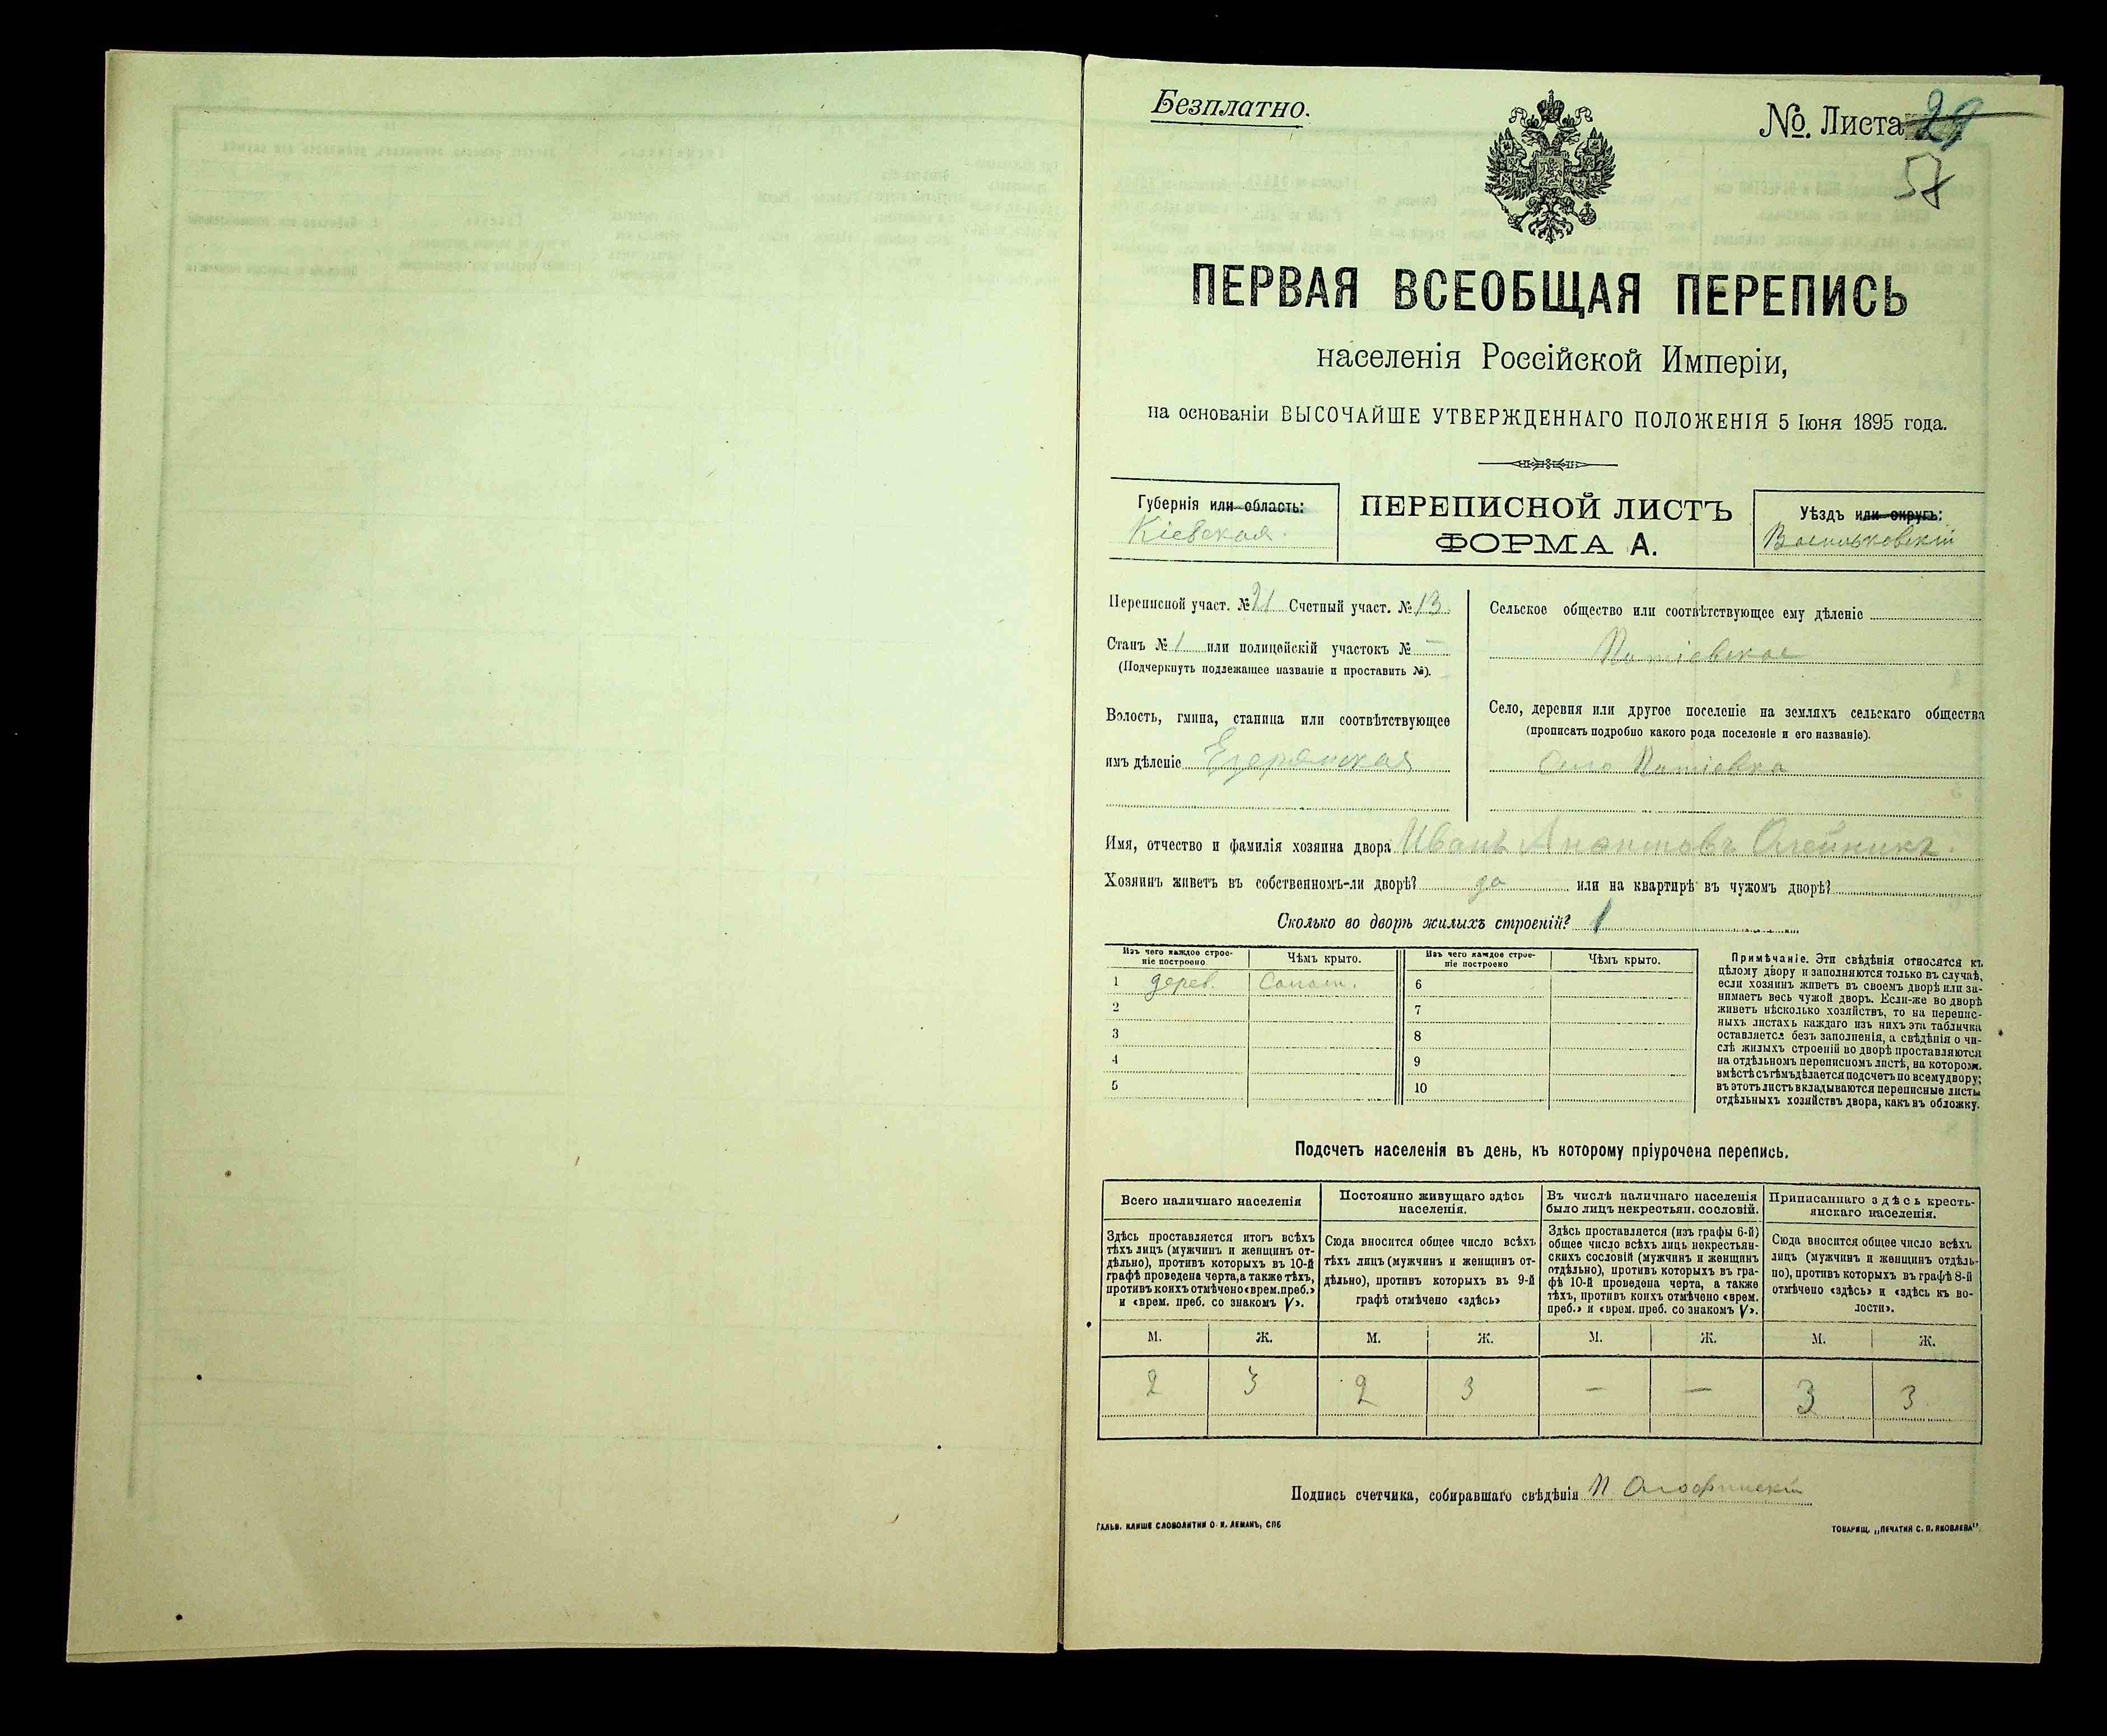 Безплатно.
№. Листа 29
57
ПЕРВАЯ ВСЕОБЩАЯ ПЕРЕПИСЬ
населенія Россійской Имперіи,
на основаніи ВЫСОЧАЙШЕ УТВЕРЖДЕННАГО ПОЛОЖЕНІЯ 5 Іюня 1895 года.
Губернія или область:
Кіевская.
ПЕРЕПИСНОЙ ЛИСТЪ
ФОРМА А.
Уѣздъ или округъ:
Васильковскій
Переписной участ. № 21 Счетный участ. № 13.
Станъ № 1 или полицейскій участокъ № —
(Подчеркнуть подлежащее названіе и проставить №).
Волость, гмина, станица или соотвѣтствующее
имъ дѣленіе Езерянская
Сельское общество или соотвѣтствующее ему дѣленіе
Село, деревня или другое поселеніе на земляхъ сельскаго общества
(прописать подробно какого рода поселеніе и его названіе).
Село
Имя, отчество и фамилія хозяина двора Иванъ Олейникъ.
Хозяинъ живетъ въ собственномъ-ли дворѣ? да или на квартирѣ въ чужомъ дворѣ?
Сколько во дворѣ жилыхъ строеній? 1
Изъ чего каждое строе-
ніе построено
Чѣмъ крыто.
Изъ чего каждое строе-
ніе построено
Чѣмъ крыто.
1 дерев. Солом.
2
3
4
5
6
7
8
9
10
Примѣчаніе. Эти свѣдѣнія относятся къ
цѣлому двору и заполняются только въ случаѣ,
если хозяинъ живетъ въ своемъ дворѣ или за-
нимаетъ весь чужой дворъ. Если-же во дворѣ
живетъ нѣсколько хозяйствъ, то на перепис-
ныхъ листахъ каждаго изъ нихъ эта табличка
оставляется безъ заполненія, а свѣдѣнія о чи-
слѣ жилыхъ строеній во дворѣ проставляются
на отдѣльномъ переписномъ листѣ, на котором.
вмѣстѣ съ тѣмъ дѣлается подсчетъ по всему двору;
въ этотъ листъ вкладываются переписные листы
отдѣльныхъ хозяйствъ двора, какъ въ обложку.
Подсчетъ населенія въ день, къ которому пріурочена перепись.
Всего наличнаго населенія
Здѣсь проставляется итогъ всѣхъ
тѣхъ лицъ (мужчинъ и женщинъ от-
дѣльно), противъ которыхъ въ 10-й
графѣ проведена черта, а также тѣхъ,
противъ коихъ отмѣчено «врем. преб.»
и «врем. преб. со знакомъ V».
Постоянно живущаго здѣсь
населенія.
Сюда вносится общее число всѣхъ
тѣхъ лицъ (мужчинъ и женщинъ от-
дѣльно), противъ которыхъ въ 9-й
графѣ отмѣчено «здѣсь»
Въ числѣ наличнаго населенія
было лицъ некрестьян. сословій.
Здѣсь проставляется (изъ графы 6-й)
общее число всѣхъ лицъ некрестьян-
скихъ сословій (мужчинъ и женщинъ
отдѣльно), противъ которыхъ въ гра-
фѣ 10-й проведена черта, а также
тѣхъ, противъ коихъ отмѣчено «врем.
преб.» и «врем. преб. со знакомъ V».
Приписаннаго здѣсь кресть-
янскаго населенія.
Сюда вносится общее число всѣхъ
лицъ (мужчинъ и женщинъ отдѣль-
но), противъ которыхъ въ графѣ 8-й
отмѣчено «здѣсь» и «здѣсь къ во-
лости».
М. Ж. М. Ж. М. Ж. М. Ж.
2 3 2 3 — — 3 3
Подпись счетчика, собиравшаго свѣдѣнія
ГАЛЬВ. КЛИШЕ СЛОВОЛИТНИ О. И. ЛЕМАНЪ, СПБ
ТОВАРИЩ. „ПЕЧАТНЯ С. П. ЯКОВЛЕВА".